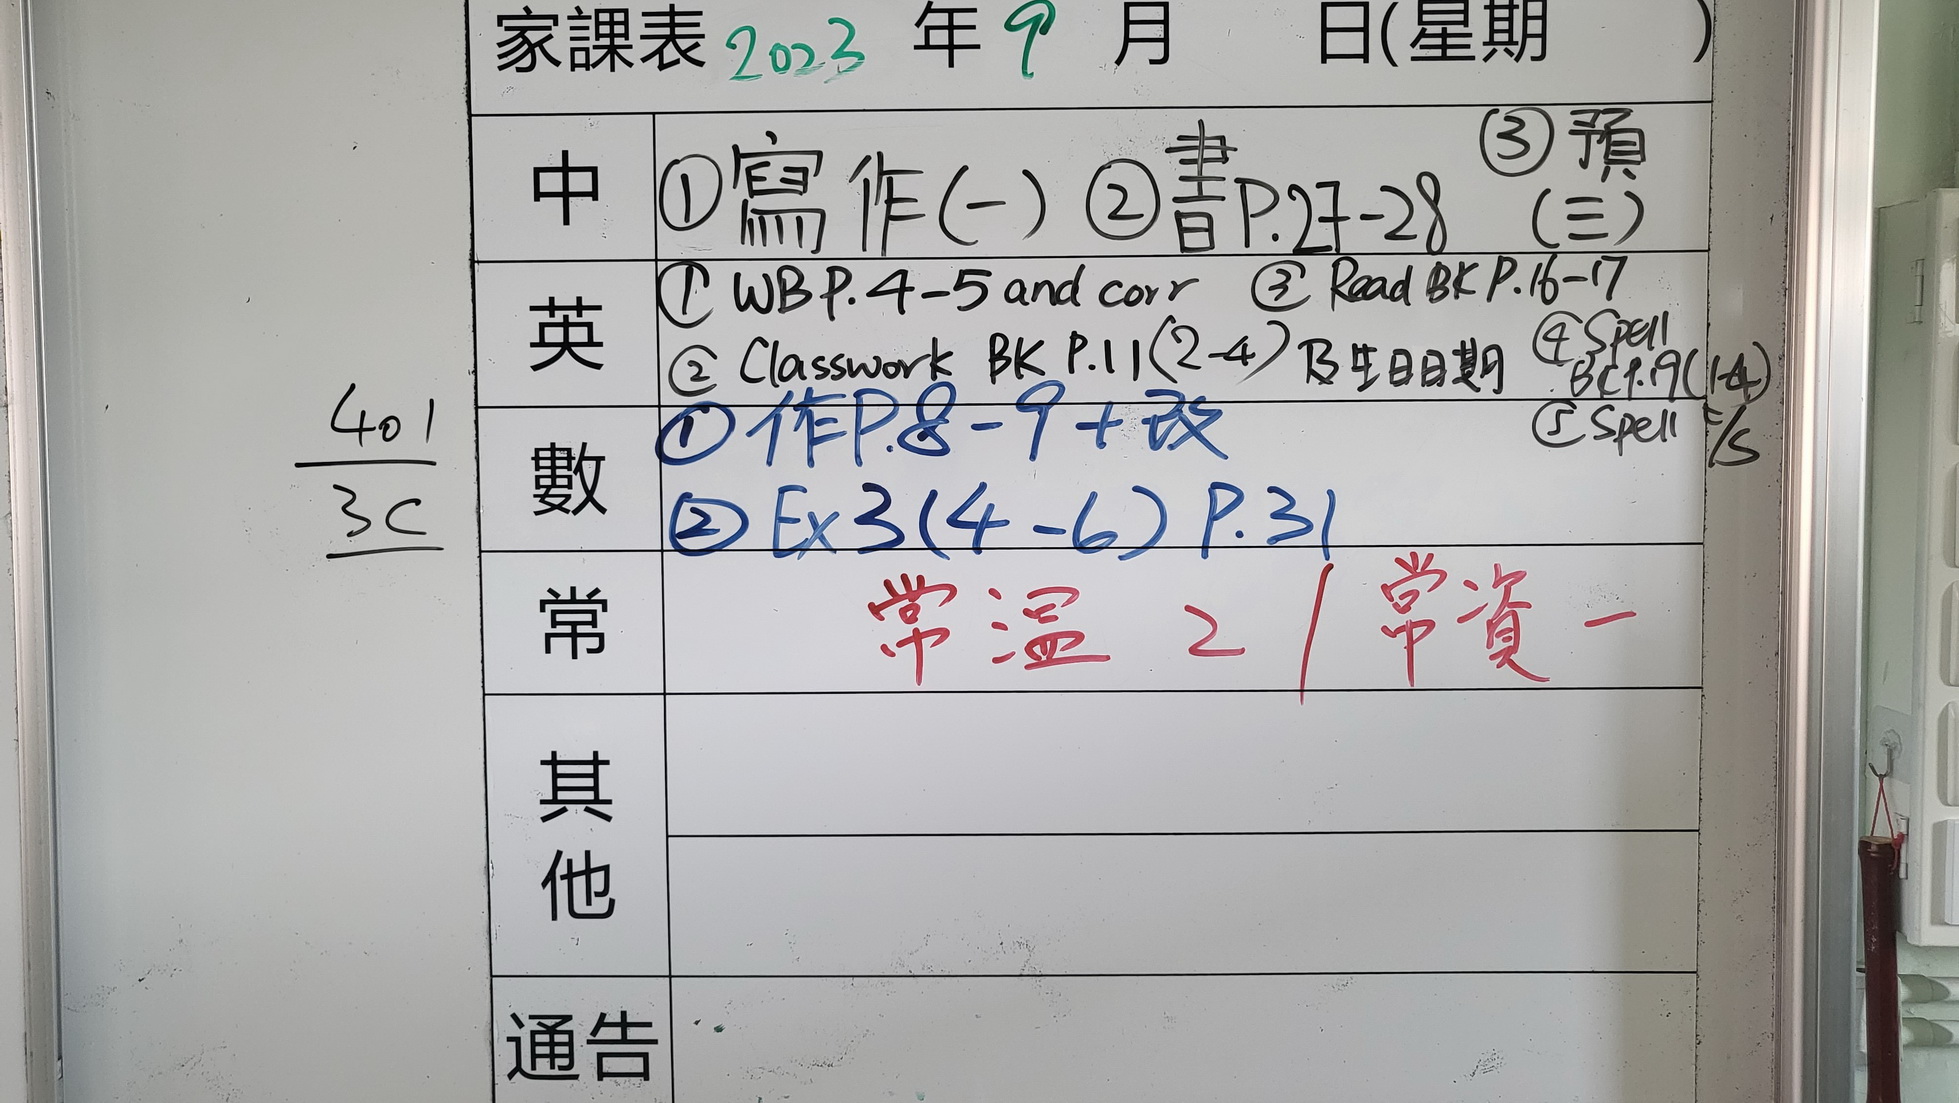 家課表 2023 年 9 月 日(星期 )
中 ①寫作(一) ②書P.27-28 ③預(三)
英 ① WB P.4-5 and corr ③ Read BK P.16-17
② Classwork BK P.11(2-4) 及生日日期 ④ Spell BK P.19(1-4)
⑤ Spell
數 ① 作P.8-9+改
② Ex 3(4-6) P.31
401
3C
常 常溫 2 / 常資一
其他
通告